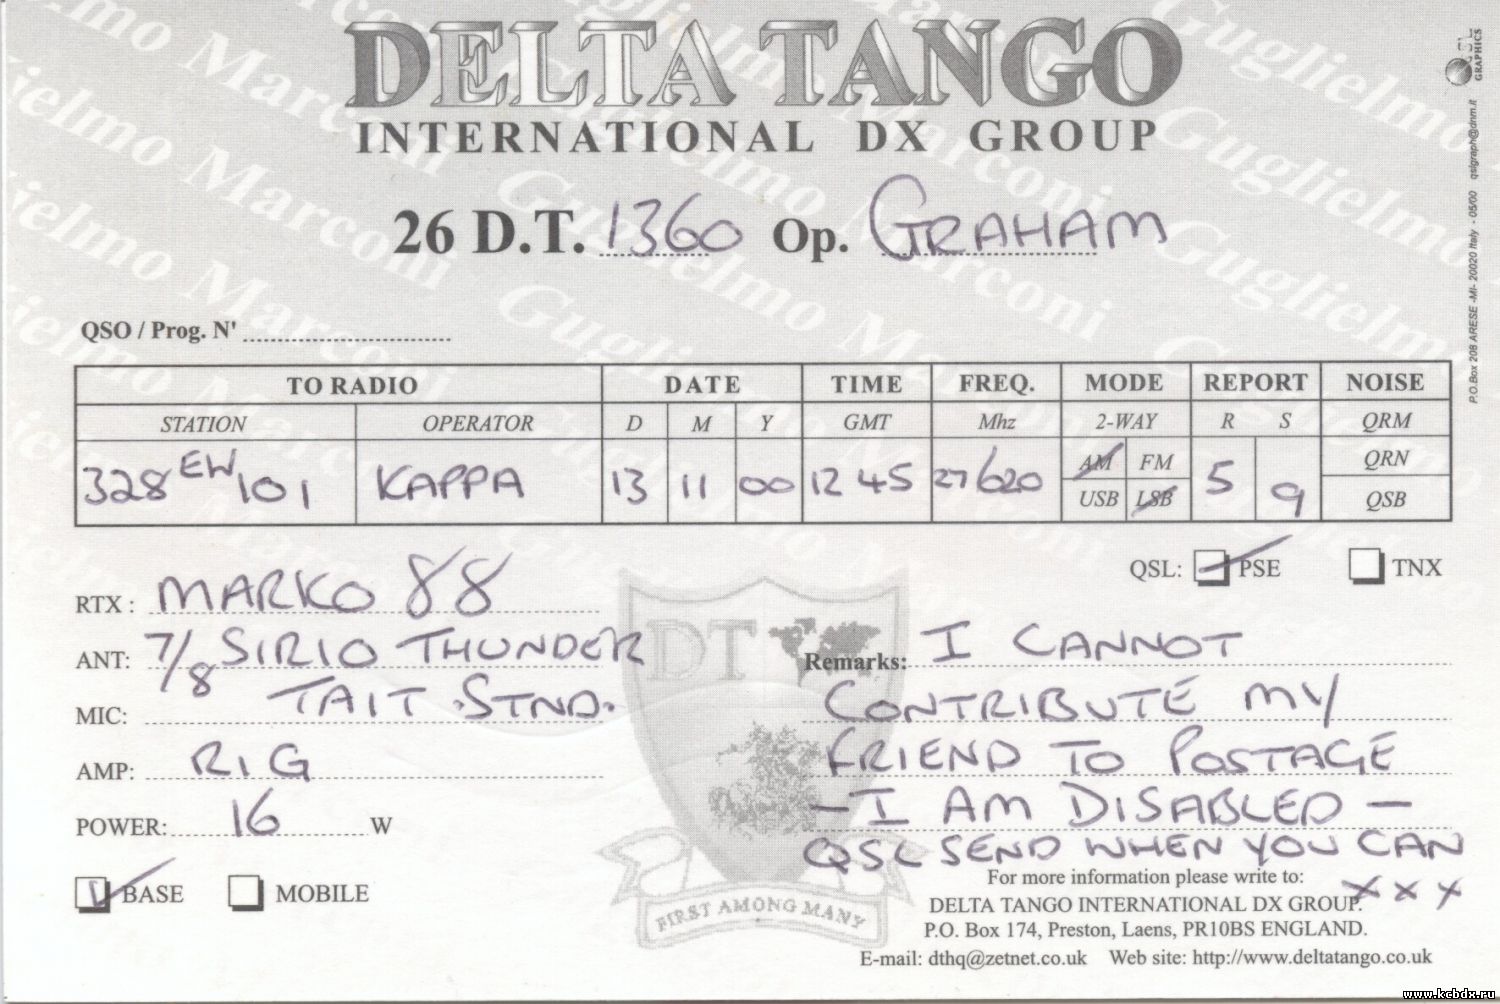 DELTA TANGO
INTERNATIONAL DX GROUP
26 D.T. 1360 Op. GRAHAM
QSO / Prog. N'
TO RADIO DATE TIME FREQ. MODE REPORT NOISE
STATION OPERATOR D M Y GMT Mhz 2-WAY R S QRM
328 EW 101 KAPPA 13 11 00 12 45 27/620 AM FM 5 9 QRN
USB LSB QSB
QSL: PSE TNX
RTX : MARKO 88
ANT: 7/8 SIRIO THUNDER
MIC: TAIT STND.
AMP: RIG
POWER: 16 W
BASE MOBILE
Remarks: I CANNOT
CONTRIBUTE MY
FRIEND TO POSTAGE
- I AM DISABLED -
QSL SEND WHEN YOU CAN
x x x
For more information please write to:
DELTA TANGO INTERNATIONAL DX GROUP.
P.O. Box 174, Preston, Laens, PR10BS ENGLAND.
E-mail: dthq@zetnet.co.uk Web site: http://www.deltatango.co.uk
DT
FIRST AMONG MANY
Guglielmo Marconi
QSL GRAPHICS
P.O.Box 208 ARESE -MI- 20020 Italy - 05/00 qslgraph@dnm.it
www.kcbdx.ru